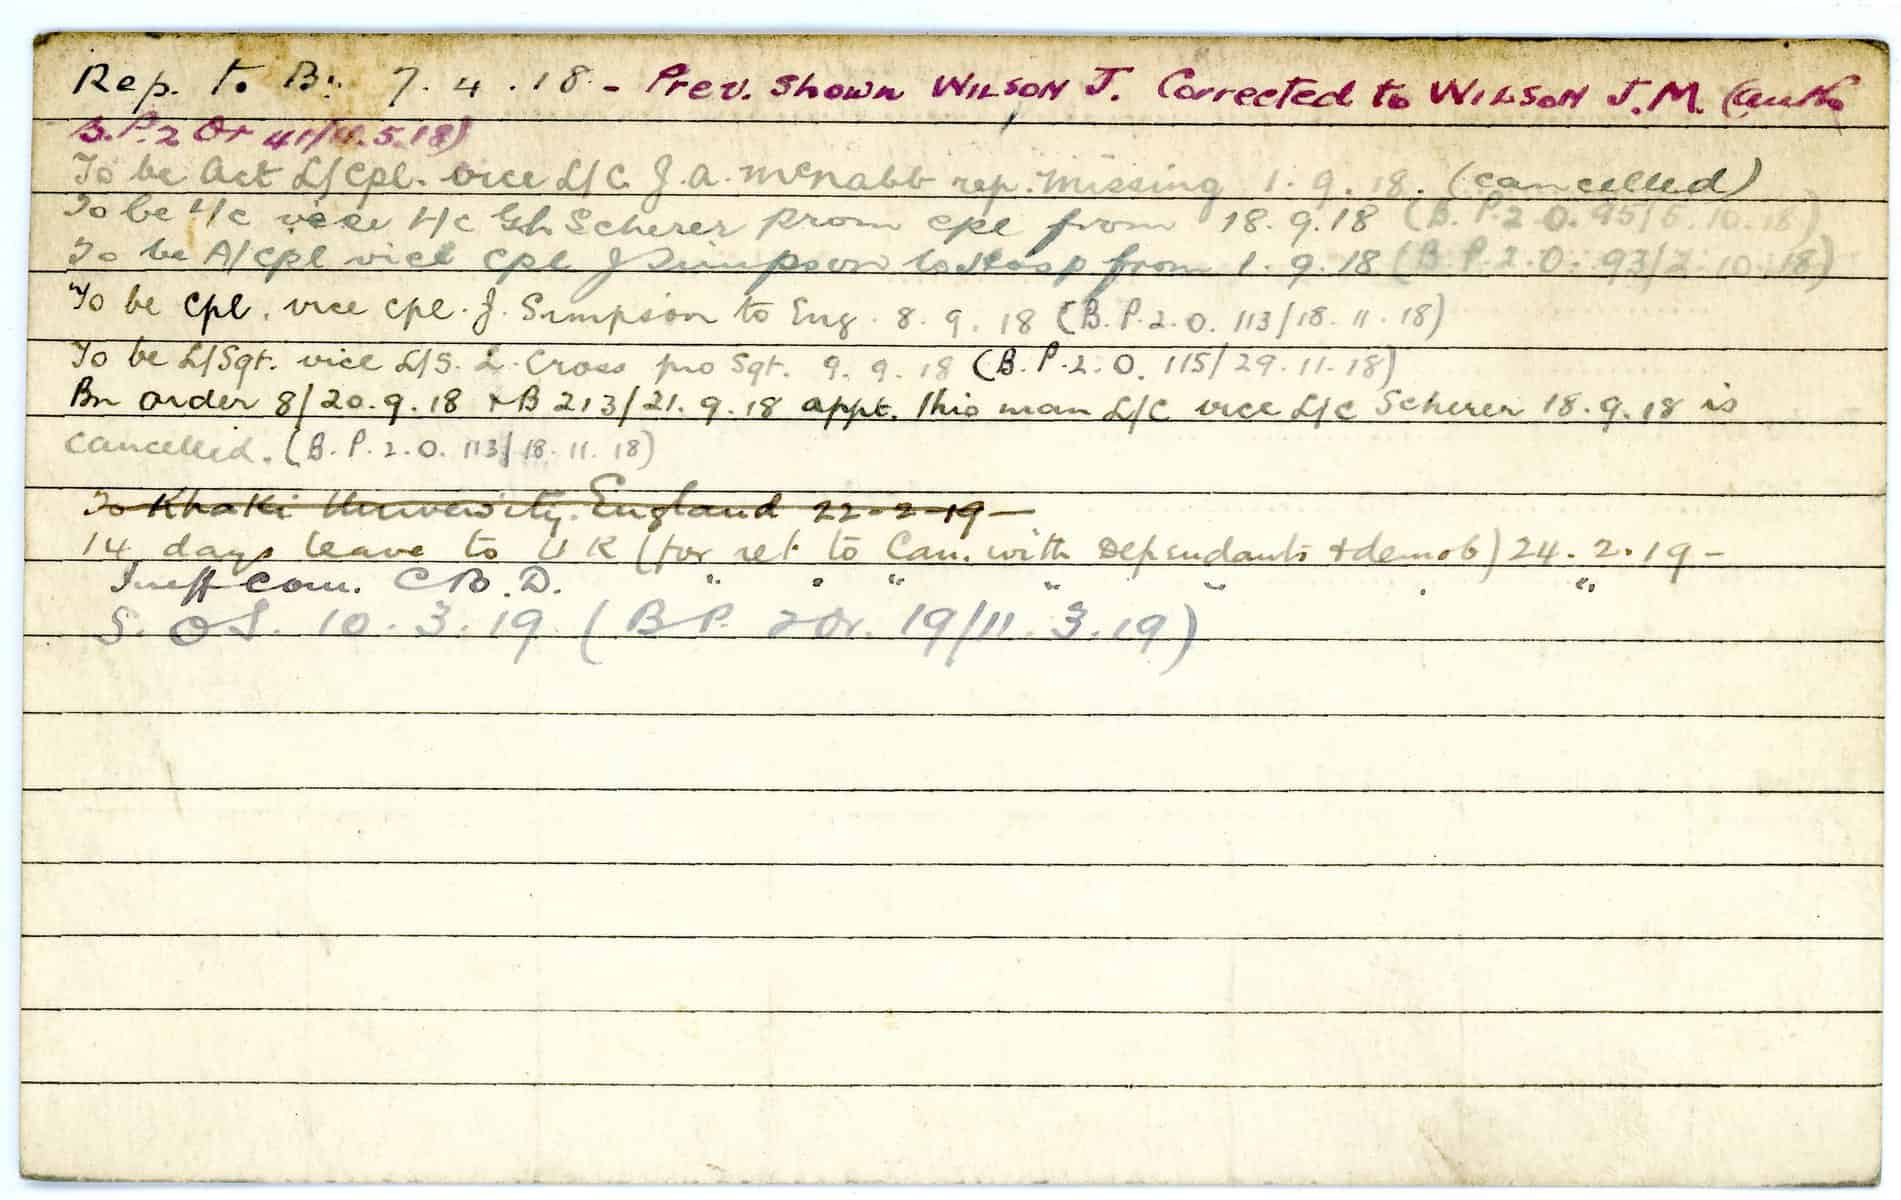 Rep. to Bn 7.4.18 - Prev. shown WILSON J. Corrected to WILSON J.M. (Auth
B.P.2 Or 41/11.5.18)
To be Act L/Cpl. vice L/C J.A. McNabb rep. missing 1.9.18. (cancelled)
To be L/c vice L/c G.h Scherer prom cpl from 18.9.18 (B.P.2.O. 95/5.10.18)
To be A/cpl vice cpl J Simpson to Hosp from 1.9.18 (B.P.2.O. 93/2.10.18)
To be Cpl. vice cpl. J. Simpson to Eng. 8.9.18 (B.P.2.O. 113/18.11.18)
To be L/Sgt. vice L/S. L. Cross pro Sgt. 9.9.18 (B.P.2.O. 115/29.11.18)
Bn order 8/20.9.18 + B 213/21.9.18 appt. this man L/C vice L/C Scherer 18.9.18 is
cancelled. (B.P.2.O. 113/18.11.18)
To Khaki University. England 22-2-19-
14 days leave to U K (for ret to Can. with Dependants + demob) 24.2.19-
Ineff Com. C B.D. " " " " " " "
S.O.S. 10.3.19 (B P. 2 Or. 19/11.3.19)